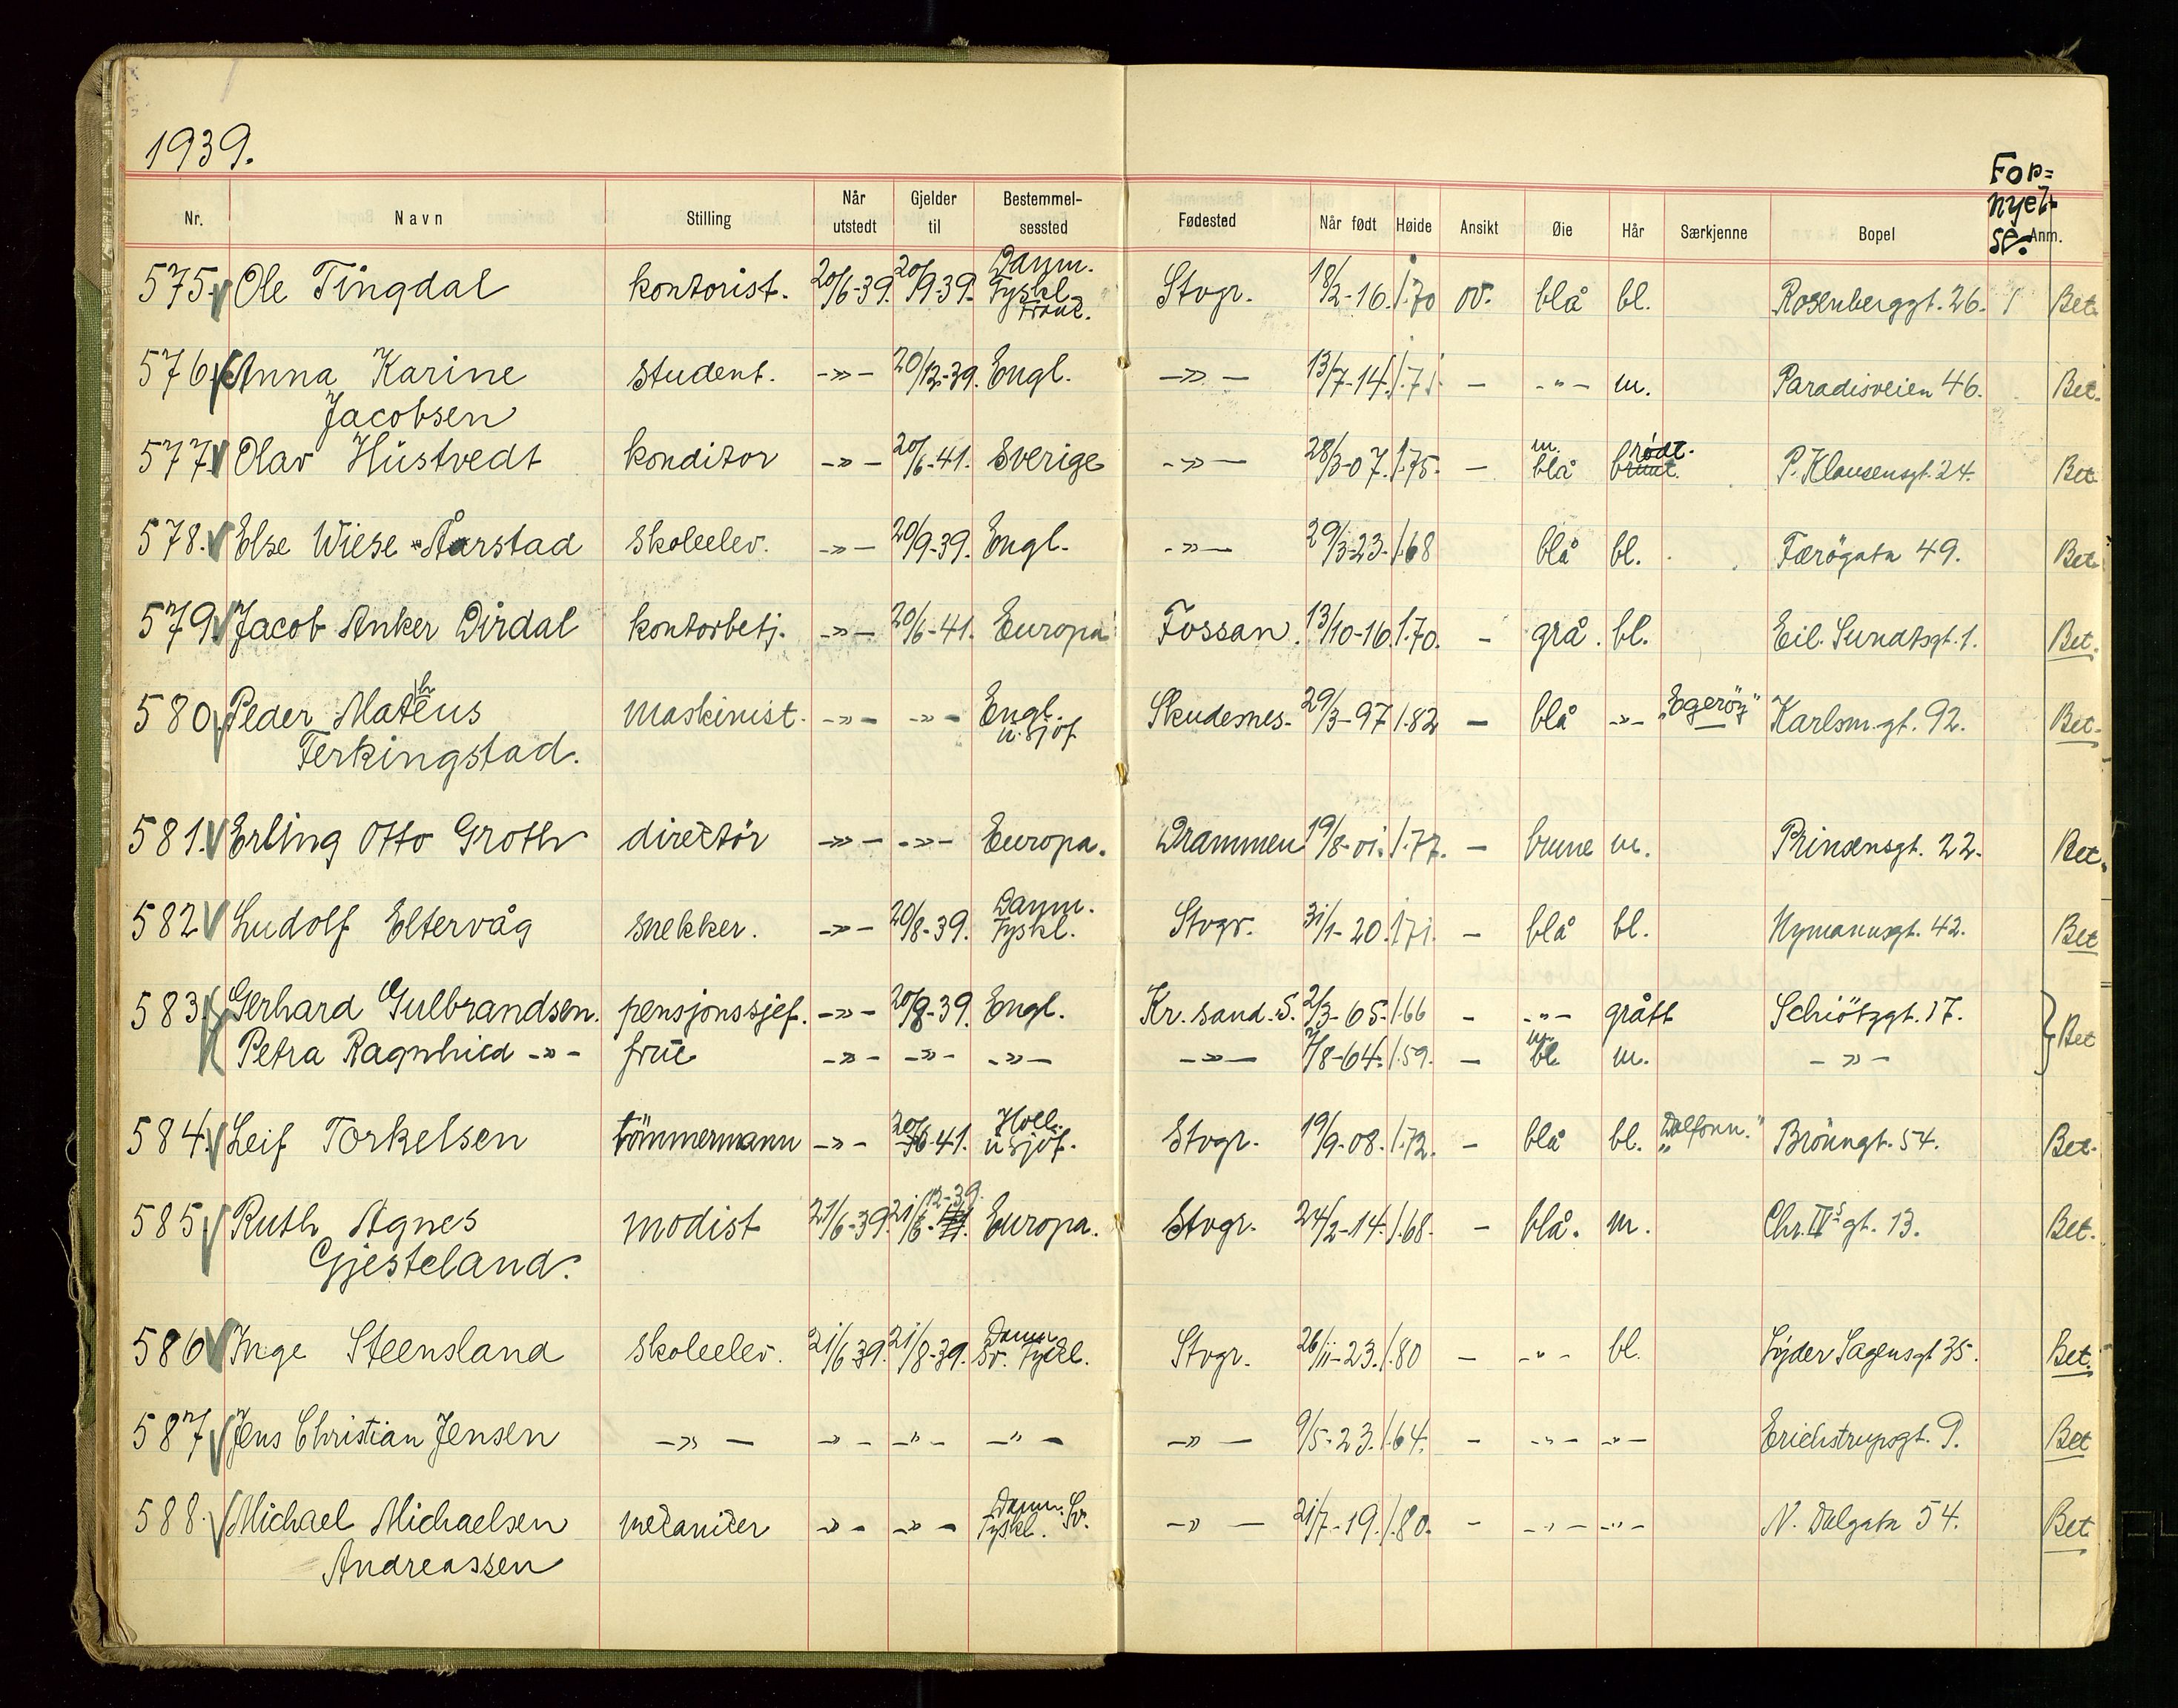 1939.
For=
nyel-
se.
Nr. Navn Stilling Når utstedt Gjelder til Bestemmelsessted Fødested Når født Høide Ansikt Øie Hår Særkjenne Bopel Anm.
Danm.
575. Ole Tingdal kontorist. 20/6-39. 20/9-39. Tyskl. Stvgr. 18/2-16. 1.70 ov. blå bl. Rosenberggt. 26. Bet.
Frank.
576. Anna Karine student. -»- 20/12-39. Engl. -»- 13/7-14. 1.71 - -"- m. Paradisveien 46. Bet.
Jacobsen
m. rødl.
577. Olav Hustvedt konditor -»- 20/6-41. Sverige -»- 28/3-07. 1.75. - blå brunt. P. Klausensgt. 24. Bet.
578. Else Wiese Aarstad skoleelev. -»- 20/9-39. Engl. -»- 29/3-23. 1.68 blå bl. Færögata 49. Bet.
579. Jacob Anker Dirdal kontorbetj. -»- 20/6-41. Europa Fossan. 13/10-16. 1.70. - grå. bl. Eil. Sundtsgt. 1. Bet.
580. Peder Matheus maskinist. -»- -»- Engl. Skudesnes. 29/3-97 1.82 - blå -»- "Egeröy" Karlsm.gt. 92. Bet.
Ferkingstad. u. sjöf
581. Erling Otto Groth direktör -»- -»- Europa. Drammen 19/8-01. 1.77. - brune m. Prinsensgt. 22. Bet.
Danm.
582 Ludolf Eltervåg snekker. -»- 20/8-39. Tyskl. Stvgr. 31/1-20. 1.71. - blå bl. Nymannsgt. 42. Bet
583. Gerhard Gulbrandsen. pensjonssjef. -»- 20/8-39. Engl. Kr.sand.S. 2/3-65. 1.66 - -"- grått Schiötzgt. 17. Bet
m.
Petra Ragnhild -»- frue -»- -»- -»- -»- 7/8-64. 1.59. - bl. m. -»-
Holl.
584. Leif Torkelsen tömmermann -»- 20/6-41. u sjöf. Stvgr. 19/9-08. 1.72. - blå bl. "Dalfonn." Brönngt. 54. Bet.
12-39.
585 Ruth Agnes modist 21/6-39. 21/6-41. Europa. Stvgr. 24/2-14. 1.68. - blå. m. Chr. IVs gt. 13. Bet.
Gjesteland.
Danm
586 Inge Steensland skoleelev. 21/6-39. 21/8-39. Sv. Tyskl. Stvgr. 26/11-23. 1.80 - -"- bl. Lyder Sagensgt 35. Bet.
587 Jens Christian Jensen -»- -»- -"- -"- -»- 9/5-23. 1.64. - -"- -"- Erichstrupsgt. 9. Bet
Danm. Sv.
588. Michael Michaelsen mekaniker -»- -»- Tyskl. -»- 21/7-19. 1.80. - -"- -"- N. Dalgata 54. Bet
Andreassen